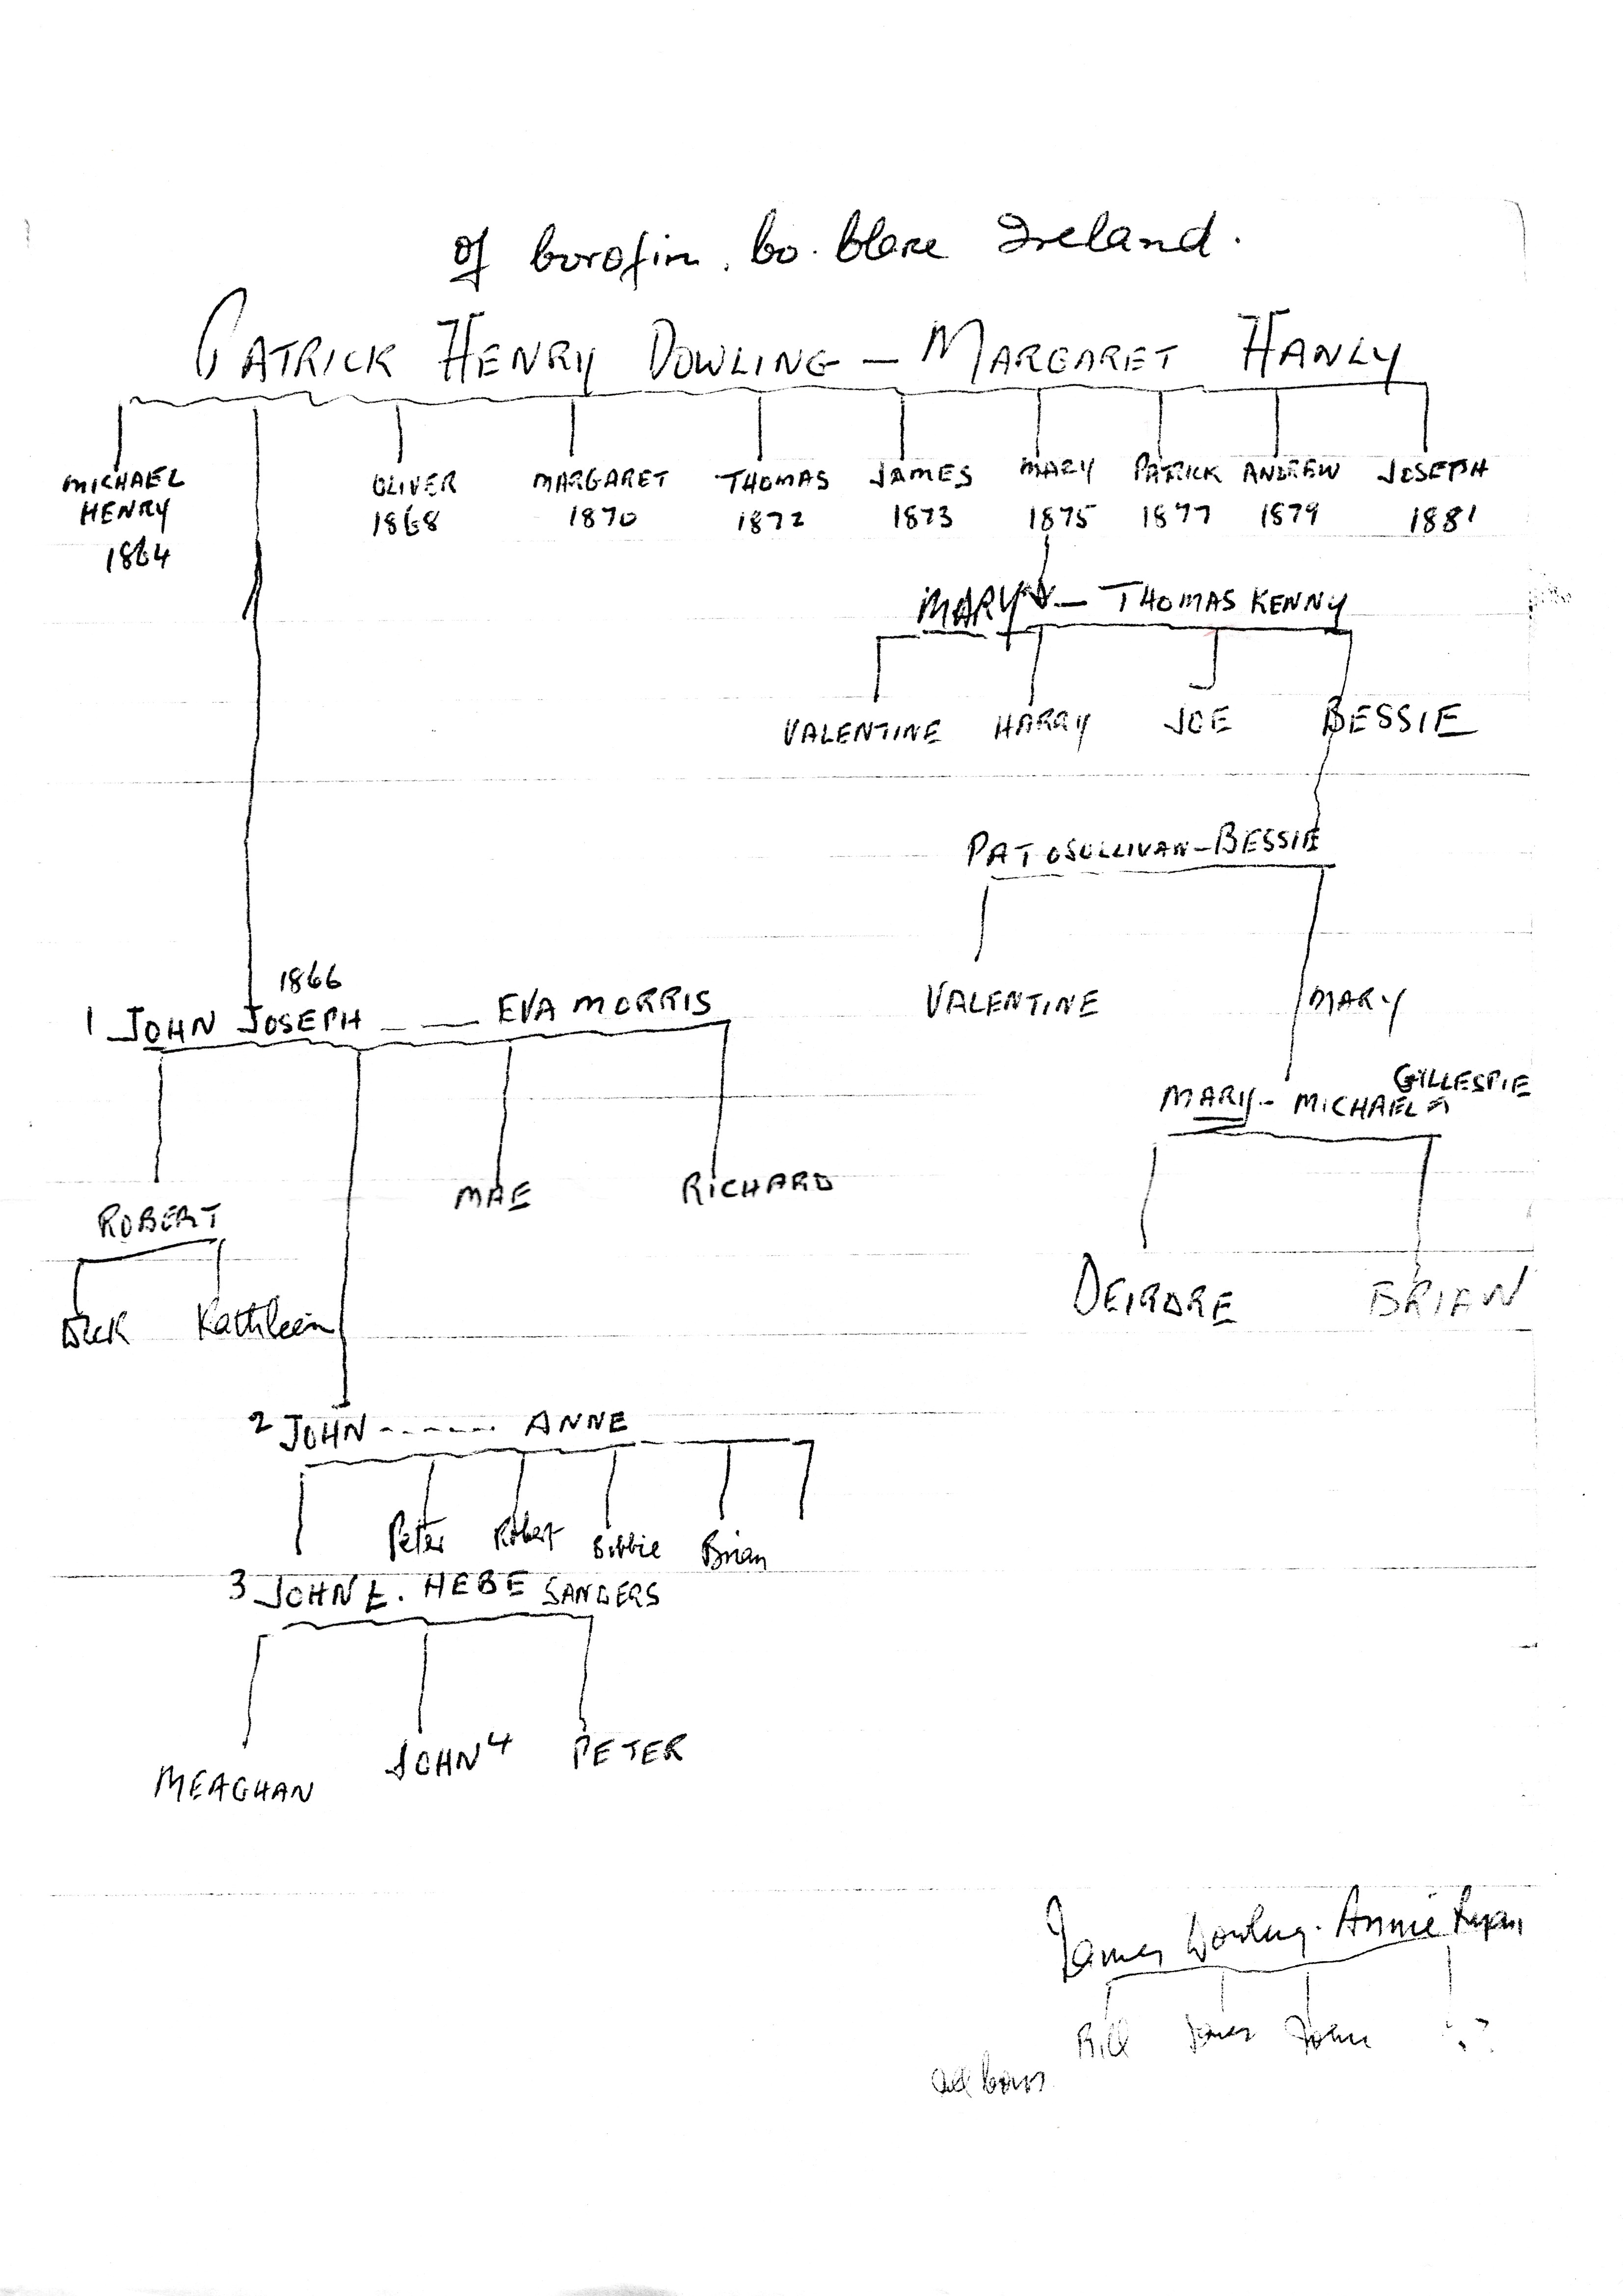 of Corofin. Co. Clare Ireland.
PATRICK HENRY DOWLING — MARGARET HANLY
MICHAEL HENRY 1864
OLIVER 1868
MARGARET 1870
THOMAS 1872
JAMES 1873
MARY 1875
PATRICK 1877
ANDREW 1879
JOSEPH 1881
MARY — THOMAS KENNY
VALENTINE HARRY JOE BESSIE
PAT OSULLIVAN - BESSIE
VALENTINE MARY
1866
1 JOHN JOSEPH — — EVA MORRIS
GILLESPIE
MARY - MICHAEL
ROBERT MAE RICHARD
DEIRDRE BRIAN
Dick Kathleen
2 JOHN ------ ANNE
Peter Robert Bibbie Brian
3 JOHN E. HEBE SANDERS
MEAGHAN JOHN 4 PETER
James Dowling - Annie Ryan
Bill James John ??
all boys